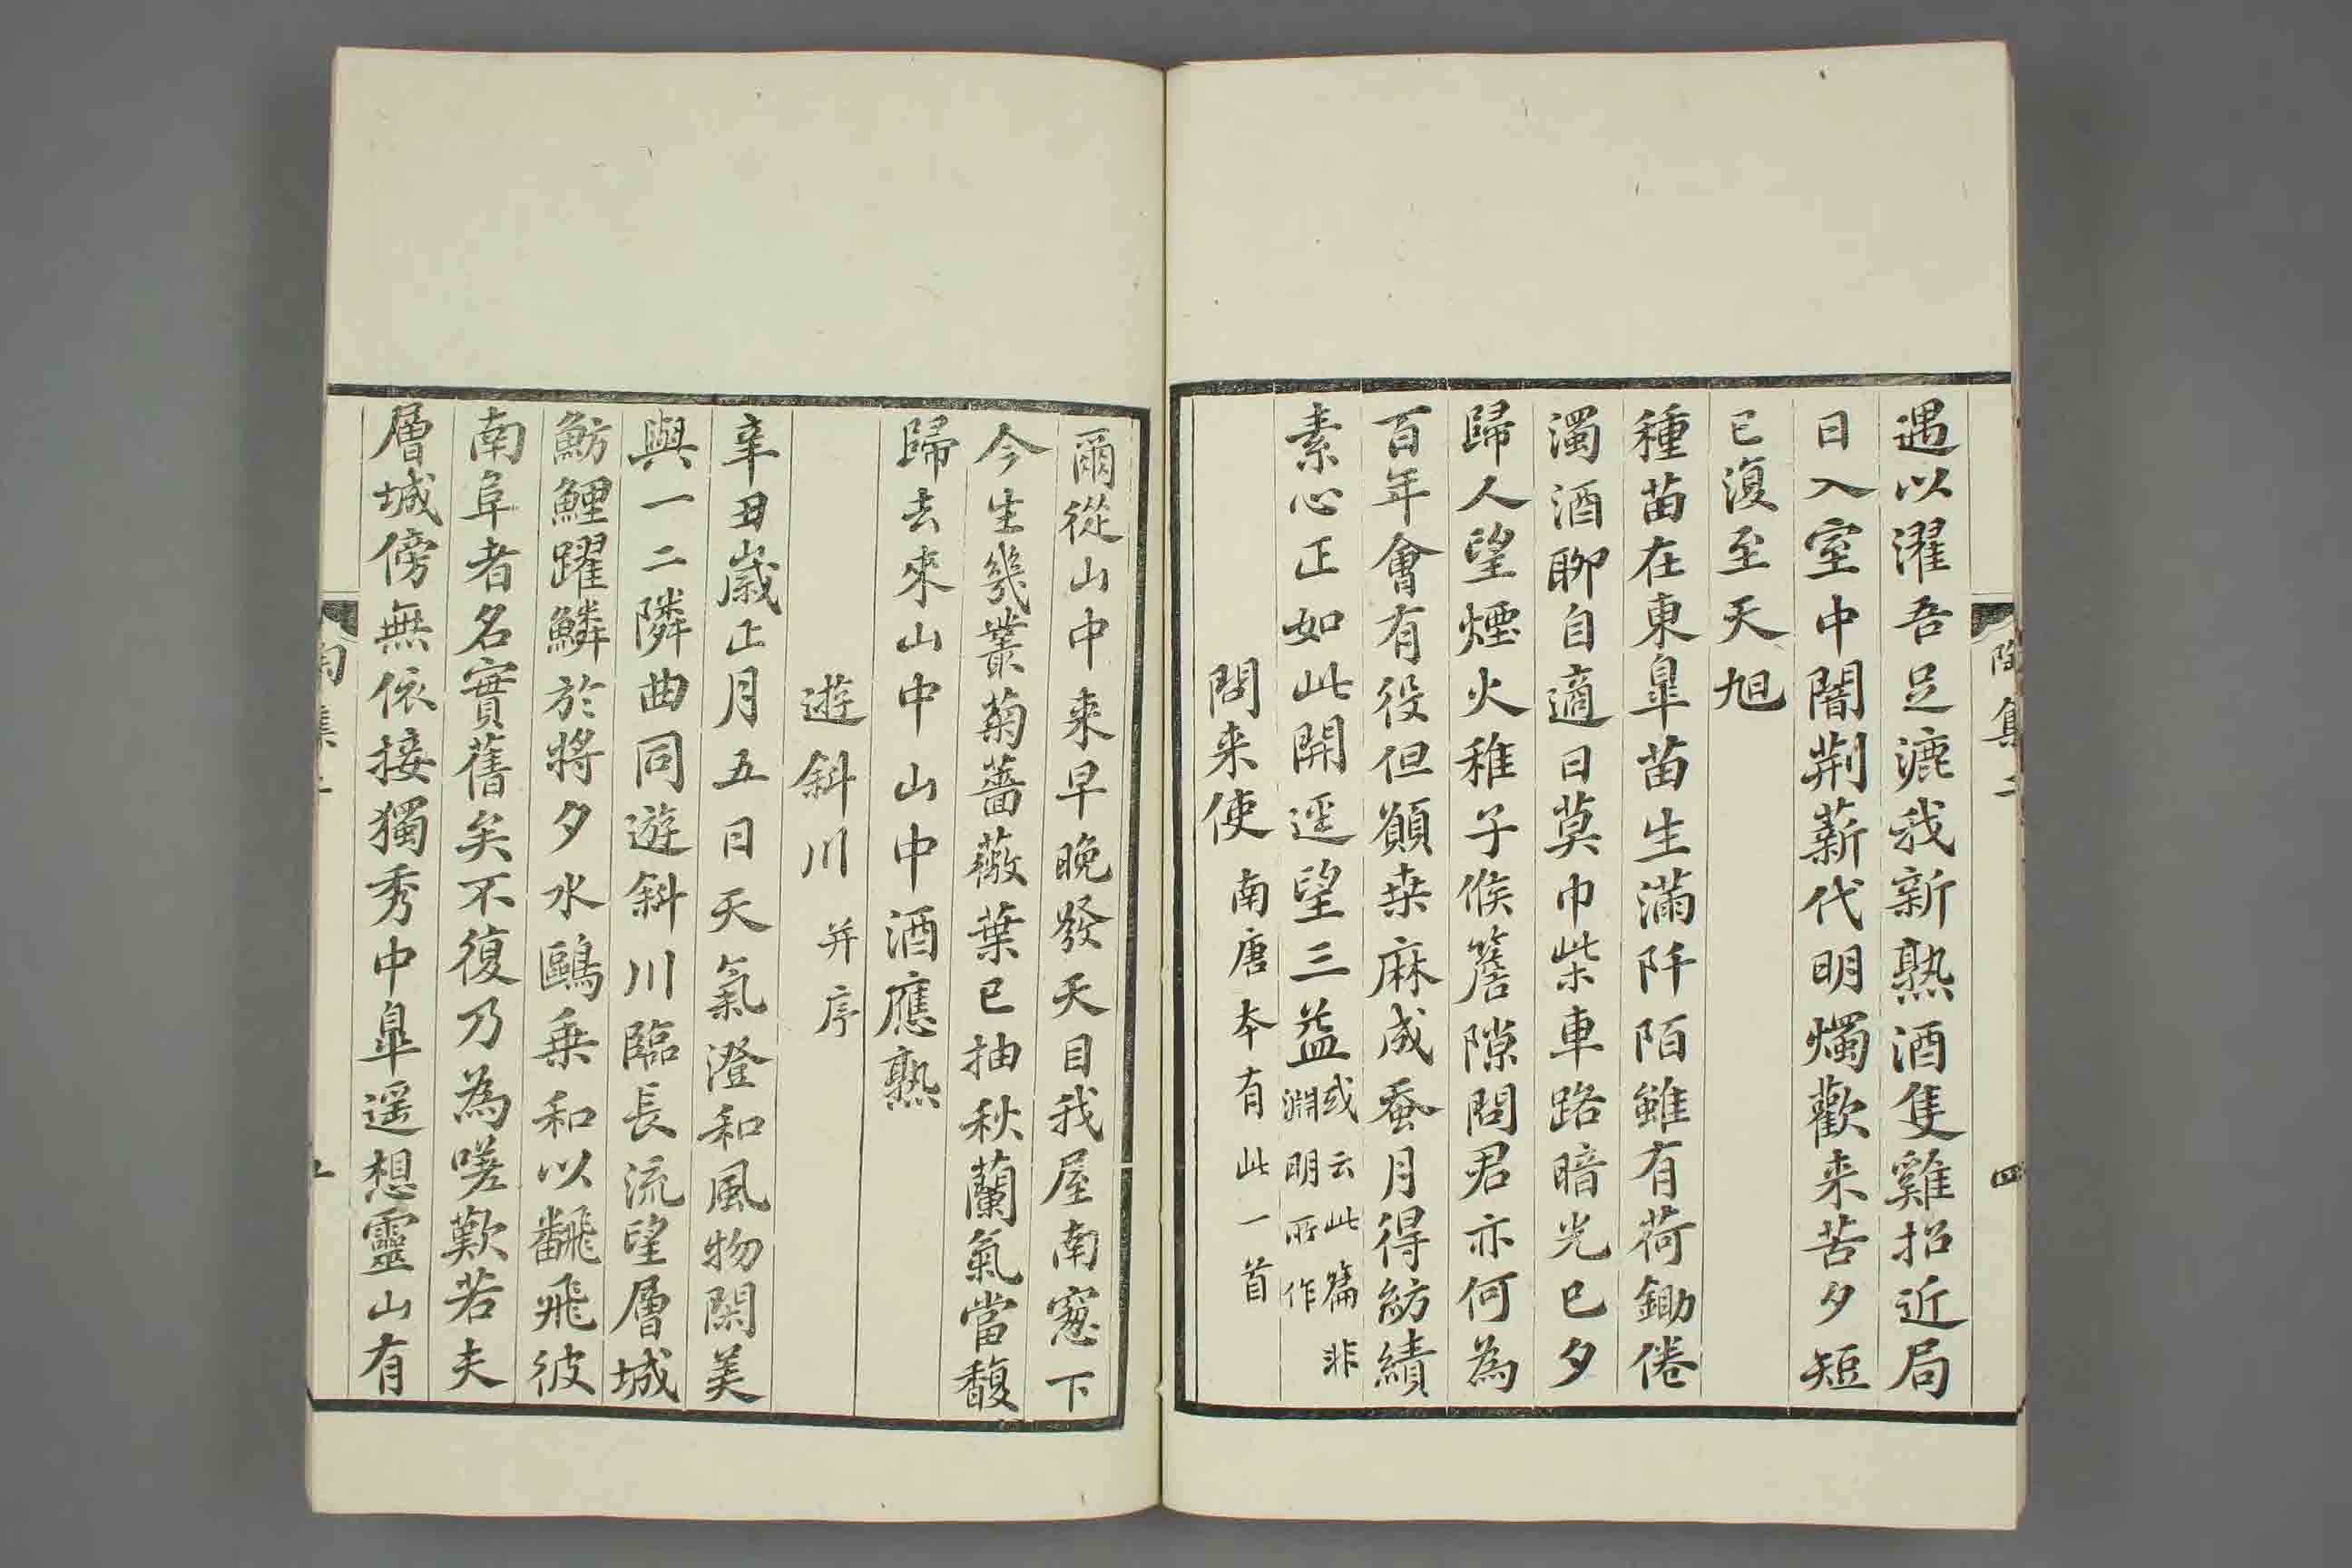 陶集二
四
遇以濯吾足漉我新熟酒隻雞招近局
日入室中闇荆薪代明燭歡来苦夕短
已復至天旭
種苗在東臯苗生滿阡陌雖有荷鋤倦
濁酒聊自適日莫巾柴車路暗光已夕
歸人望煙火稚子候簷隙問君亦何為
百年會有役但願桒麻成蚕月得紡績
素心正如此開逕望三益
或云此篇非
淵明所作
問来使 南唐夲有此一首
爾從山中来早晚發天目我屋南窻下
今生幾叢菊薔薇葉已抽秋蘭氣當馥
歸去來山中山中酒應熟
遊斜川 并序
辛丑歲正月五日天氣澄和風物閑美
與一二隣曲同遊斜川臨長流望層城
魴鯉躍鱗於將夕水鷗乗和以翻飛彼
南阜者名實舊矣不復乃為嗟歎若夫
層城傍無依接獨秀中臯遥想靈山有